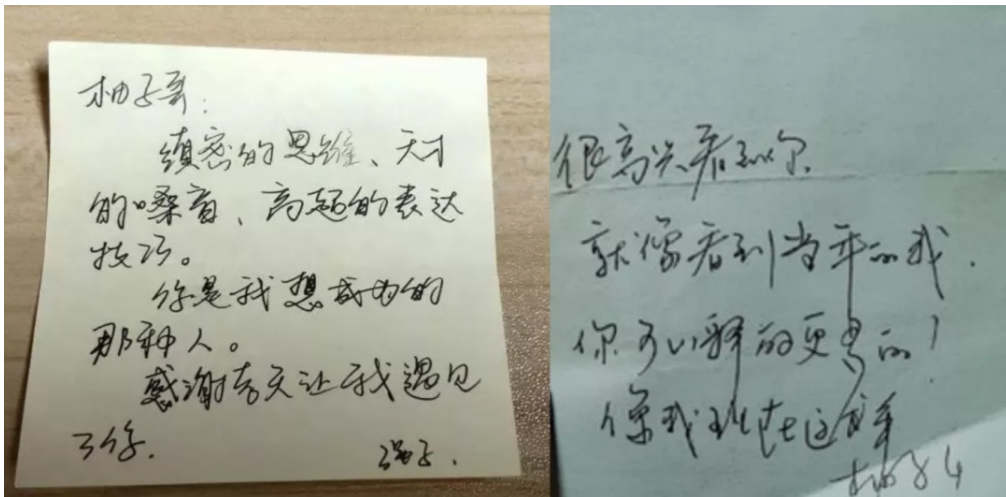 柚子哥:
缜密的思维、天才
的嗓音、高超的表达
技巧。
你是我想成为的
那种人。
感谢老天让我遇见
了你.
强子.
很高兴看到你
就像看到当年的我.
你可以释的更多的!
像我现在这样
柚子